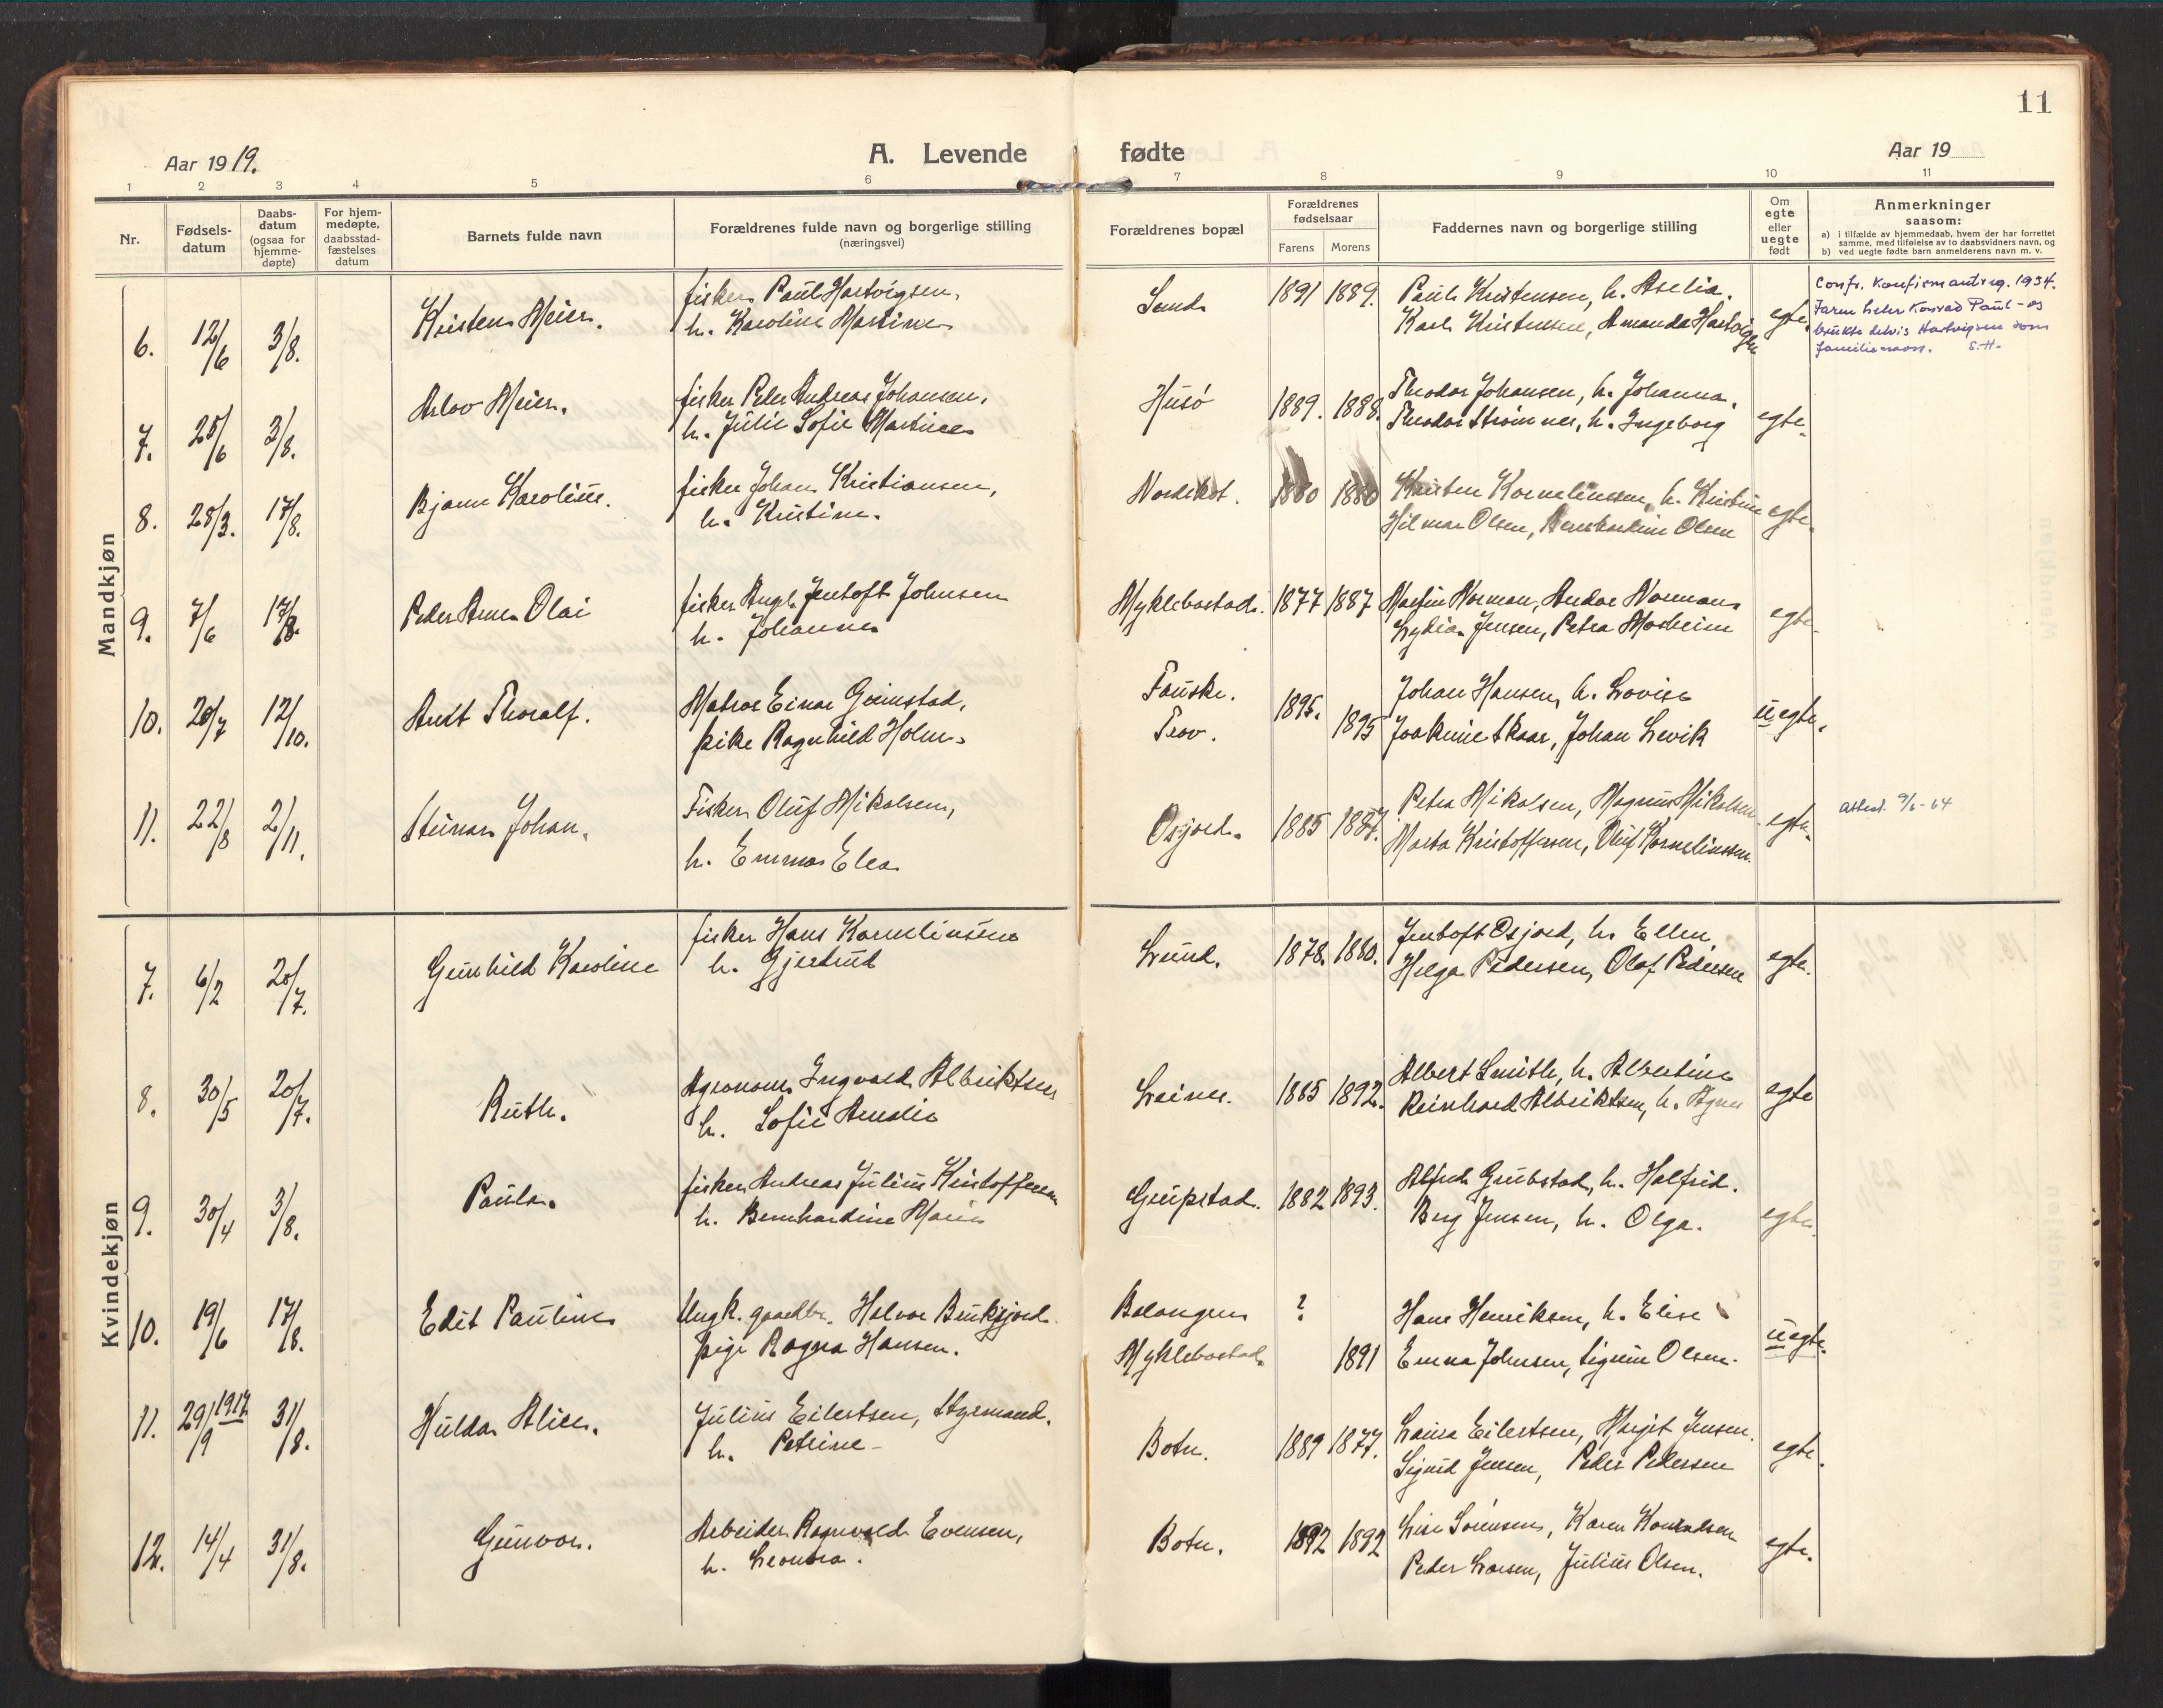 11
Aar 1919.
A. Levende fødte
Aar 19
1 2 3 4 5 6 7 8 9 10 11
Nr.
Fødsels-
datum
Daabs-
datum
(ogsaa for
hjemme-
døpte)
For hjem-
medøpte,
daabsstad-
fæstelses
datum
Barnets fulde navn
Forældrenes fulde navn og borgerlige stilling
(næringsvei)
Forældrenes bopæl
Forældrenes
fødselsaar
Farens Morens
Faddernes navn og borgerlige stilling
Om
egte
eller
uegte
født
Anmerkninger
saasom:
a) i tilfælde av hjemmedaab, hvem der har forrettet
samme, med tilføielse av to daabsvidners navn, og
b) ved uegte fødte barn anmelderens navn m. v.
Mandkjøn
6. 12/6 3/8. Kristen Meier. fisker Paul Hartvigsen, Sand 1891 1889. Paul Kristensen, h. Aselia. egte.
h. Karoline Martine Karl Kristensen, Amanda Hartvigsen
Confr. Konfirmantreg. 1934.
Faren heter Konrad Paul - og
brukte delvis Hartvigsen som
familienavn. S.H.
7. 25/6 3/8. Arlov Meier. fisker Peder Andreas Johansen, Husö 1889. 1888. Theodor Johansen, h. Johanna. egte.
h. Julie Sofie Martine Theodor Strömnes, h. Ingeborg
8. 28/3. 17/8. Bjarne Karolius. fisker Johan Kristiansen, Nordskot. 1880 1880 Kristen Korneliussen, h. Kristine egte.
h. Kristine. Hilmar Olsen, Olsen
9. 7/6 17/8. Peder Arne Olai fisker Angel Jentoft Johnsen Myklebostad. 1877 1887 Martin Norman, Andor Norman egte.
h. Johanne Lydia Jensen, Petra Moheim
10. 20/7 12/10. Arnt Thoralf. Matros Einar Grimstad, Fauske. 1895. Johan Hansen, h. Lovise uegte.
pike Ragnhild Holm. Trov. 1895 Joakime Skaar, Johan Levik
11. 22/8 2/11. Steinar Johan. Fisker Oluf Mikalsen, Osjord. 1885 1887. Petra Mikalsen, Magnus Mikalsen. egte. Attest. 9/6-64
h. Emma Elea Marta Kristoffersen, Oluf Korneliussen.
Kvindekjøn
7. 6/2 20/7. Gunhild Karoline fisker Hans Korneliussen Lund. 1878. 1880. Jentoft Osjord, h. Ellen egte.
h. Gjertrud Helga Pedersen, Olaf Pedersen
8. 30/5 20/7. Ruth. Agronom Ingvald Albriktsen Leines. 1885 1892. Albert Smith, h. Albertine egte
h. Sofie Amalie Reinhard Albriktsen, h. Agnes
9. 30/4 3/8. Paula. fisker Andreas Julius Kristoffersen Grupstad. 1882 1893. Alfred Grubstad, h. Halfrid. egte.
h. Bernhardine Marie Berg Jensen, h. Olga.
10. 19/6 17/8. Edit Pauline Ungk. gaardbr. Halvor Buksfjord. Balangen ? Hans Henriksen, h. Elise uegte.
pige Ragna Hansen. Myklebostad. 1891 Emma Johnsen, Sigrun Olsen.
11. 29/9 1917 31/8. Hulda Alice. Julius Eilertsen, Styrmand. Botn. 1889 1877. Laura Eilertsen, Margit Jensen. egte.
h. Petrine - Sigurd Jensen, Peder Pedersen
12. 14/4 31/8. Gunvor. Arbeider Ragnvald Evensen, Botn. 1892 1892 Lise Sörensen, Karen Konradsen egte.
h. Leonora. Peder Larsen, Julius Olsen.